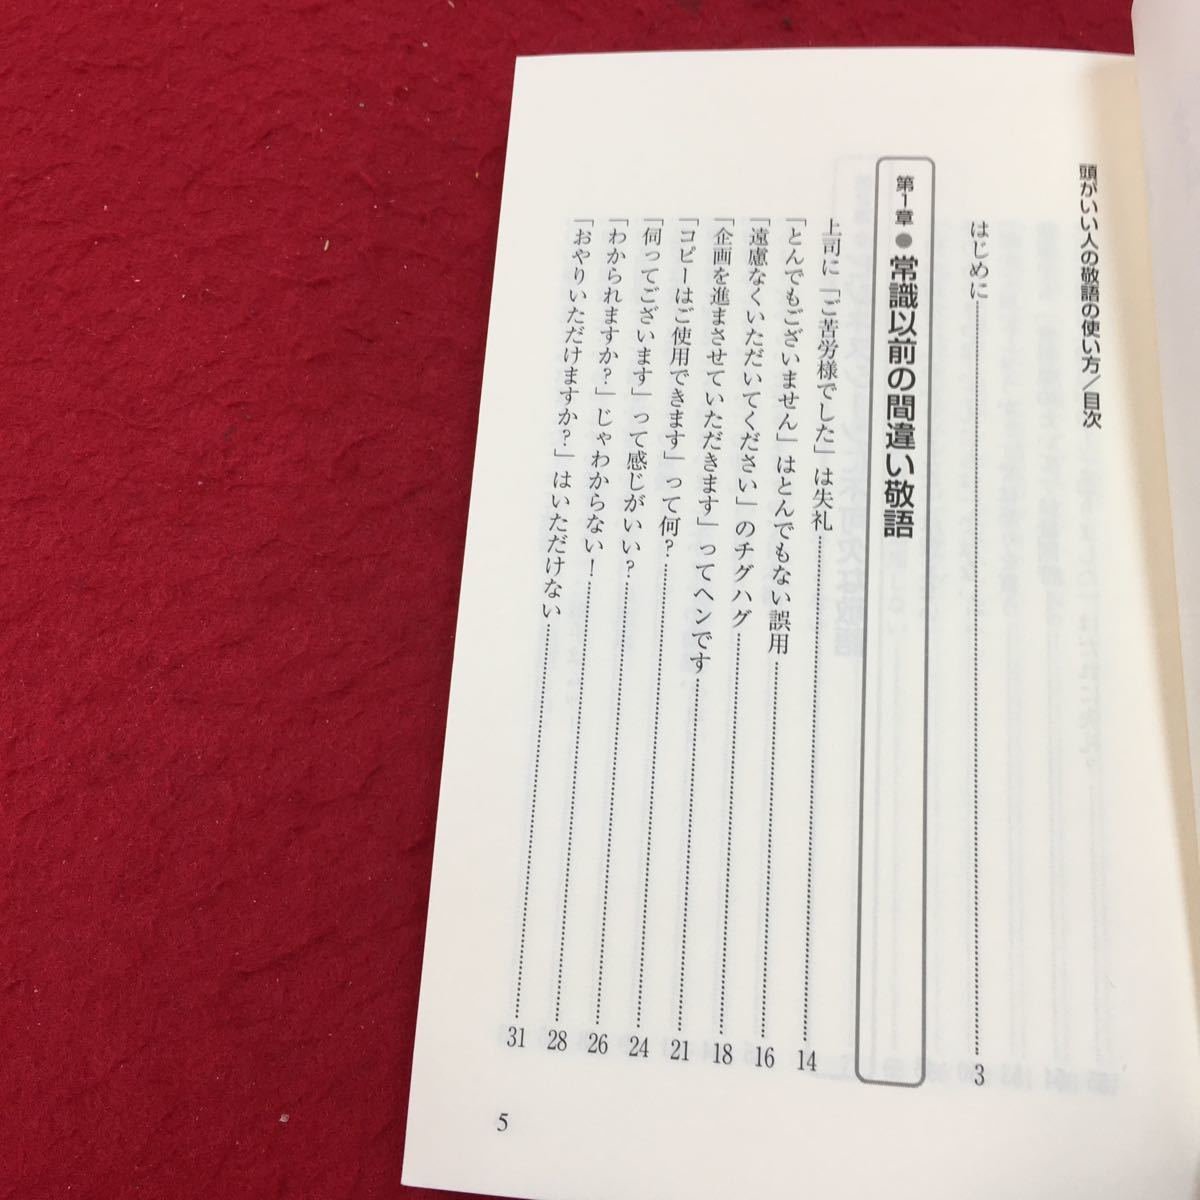 頭がいい人の敬語の使い方／目次
はじめに……3
第1章●常識以前の間違い敬語
上司に「ご苦労様でした」は失礼……14
「とんでもございません」はとんでもない誤用……16
「遠慮なくいただいてください」のチグハグ……18
「企画を進まさせていただきます」ってヘンです……21
「コピーはご使用できます」って何？……24
「伺ってございます」って感じがいい？……26
「わかられますか？」じゃわからない！……28
「おやりいただけますか？」はいただけない……31
5